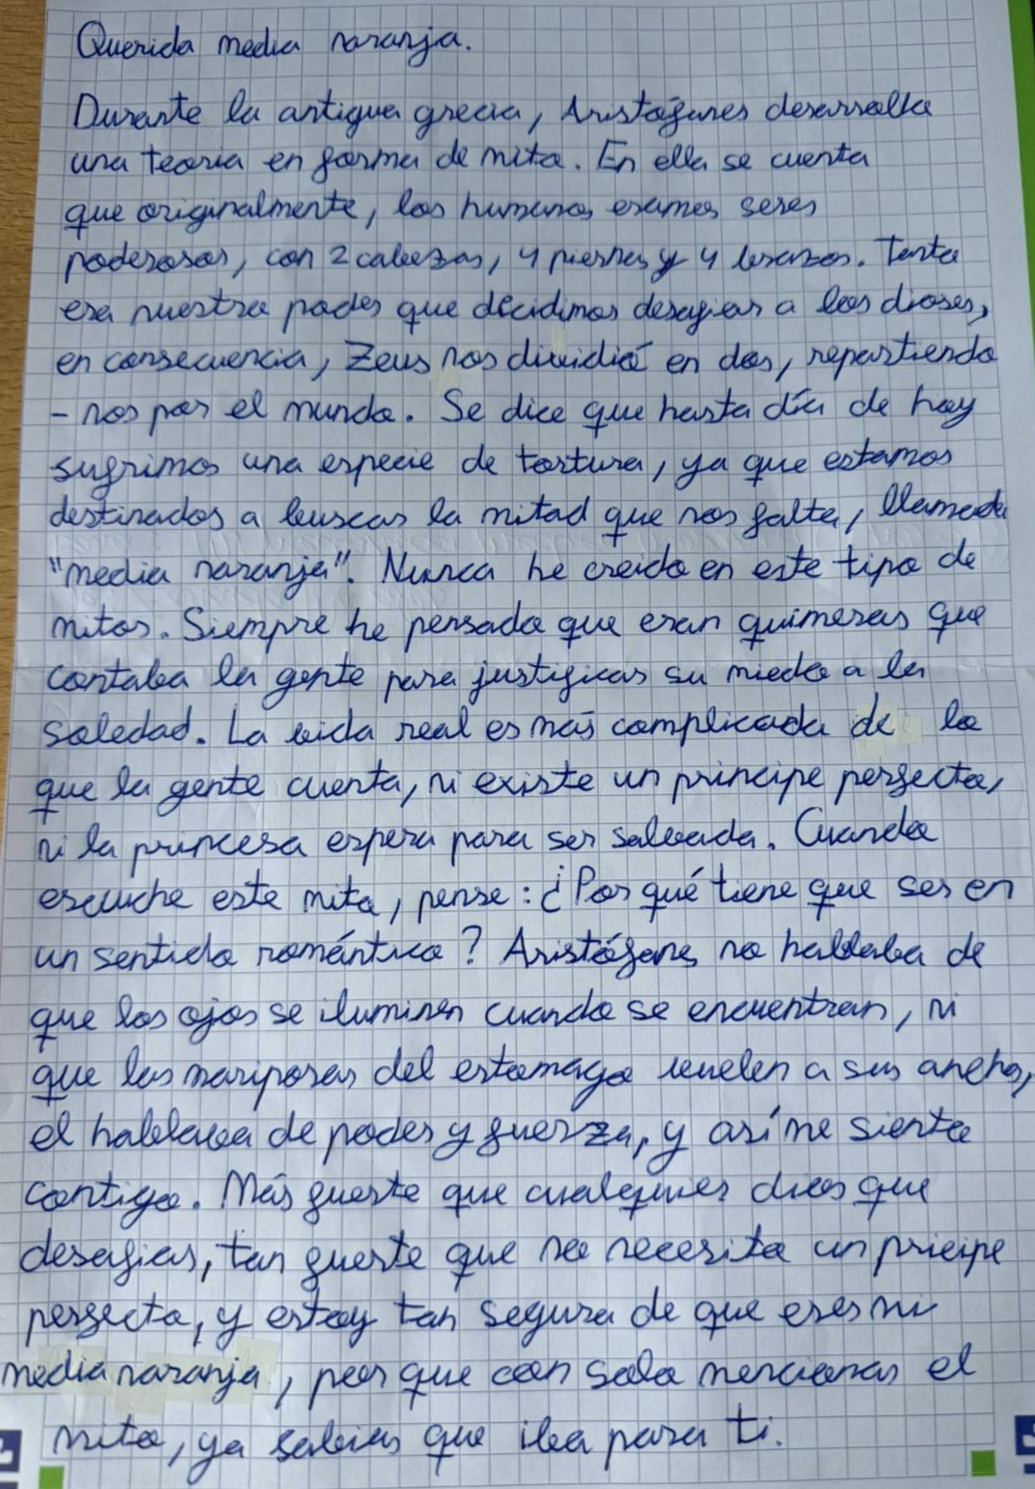 Querida media naranja.
Durante la antigua grecia, Aristófanes desarrolla
una teoria en forma de mito. En ella se cuenta
que originalmente, los humanos eramos seres
poderosos, con 2 cabezas, 4 piernas y 4 brazos. Tanto
era nuestro poder que decidimos desafiar a los dioses,
en consecuencia, Zeus nos dividió en dos, repartiendo
-nos por el mundo. Se dice que hasta día de hoy
sufrimos una especie de tortura, ya que estamos
destinados a buscar la mitad que nos falta, llamada
"media naranja". Nunca he creido en este tipo de
mitos. Siempre he pensado que eran quimeras que
contaba la gente para justificar su miedo a la
soledad. La vida real es más complicada de lo
que la gente cuenta, ni existe un principe perfecto,
ni la princesa espera para ser salvada. Cuando
escuche este mito, pense: ¿Por qué tiene que ser en
un sentido romántico? Aristófanes no hablaba de
que los ojos se iluminen cuando se encuentran, ni
que las mariposas del estomago vuelen a sus anchas,
el hablaba de poder y fuerza, y así me siento
contigo. Más fuerte que cualquier dios que
desafies, tan fuerte que no necesito un pricipe
perfecto, y estoy tan segura de que eres mi
media naranja, por que con solo mencionar el
mito, ya sabias que iba para ti.